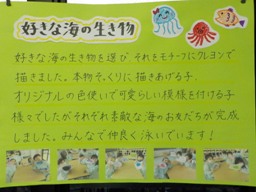 好きな海の生き物
好きな海の生き物を選び、それをモチーフにクレヨンで
描きました。本物そっくりに描きあげる子、
オリジナルの色使いで可愛らしい模様を付ける子
様々でしたがそれぞれ素敵な海のお友だちが完成
しました。みんなで仲良く泳いでいます！